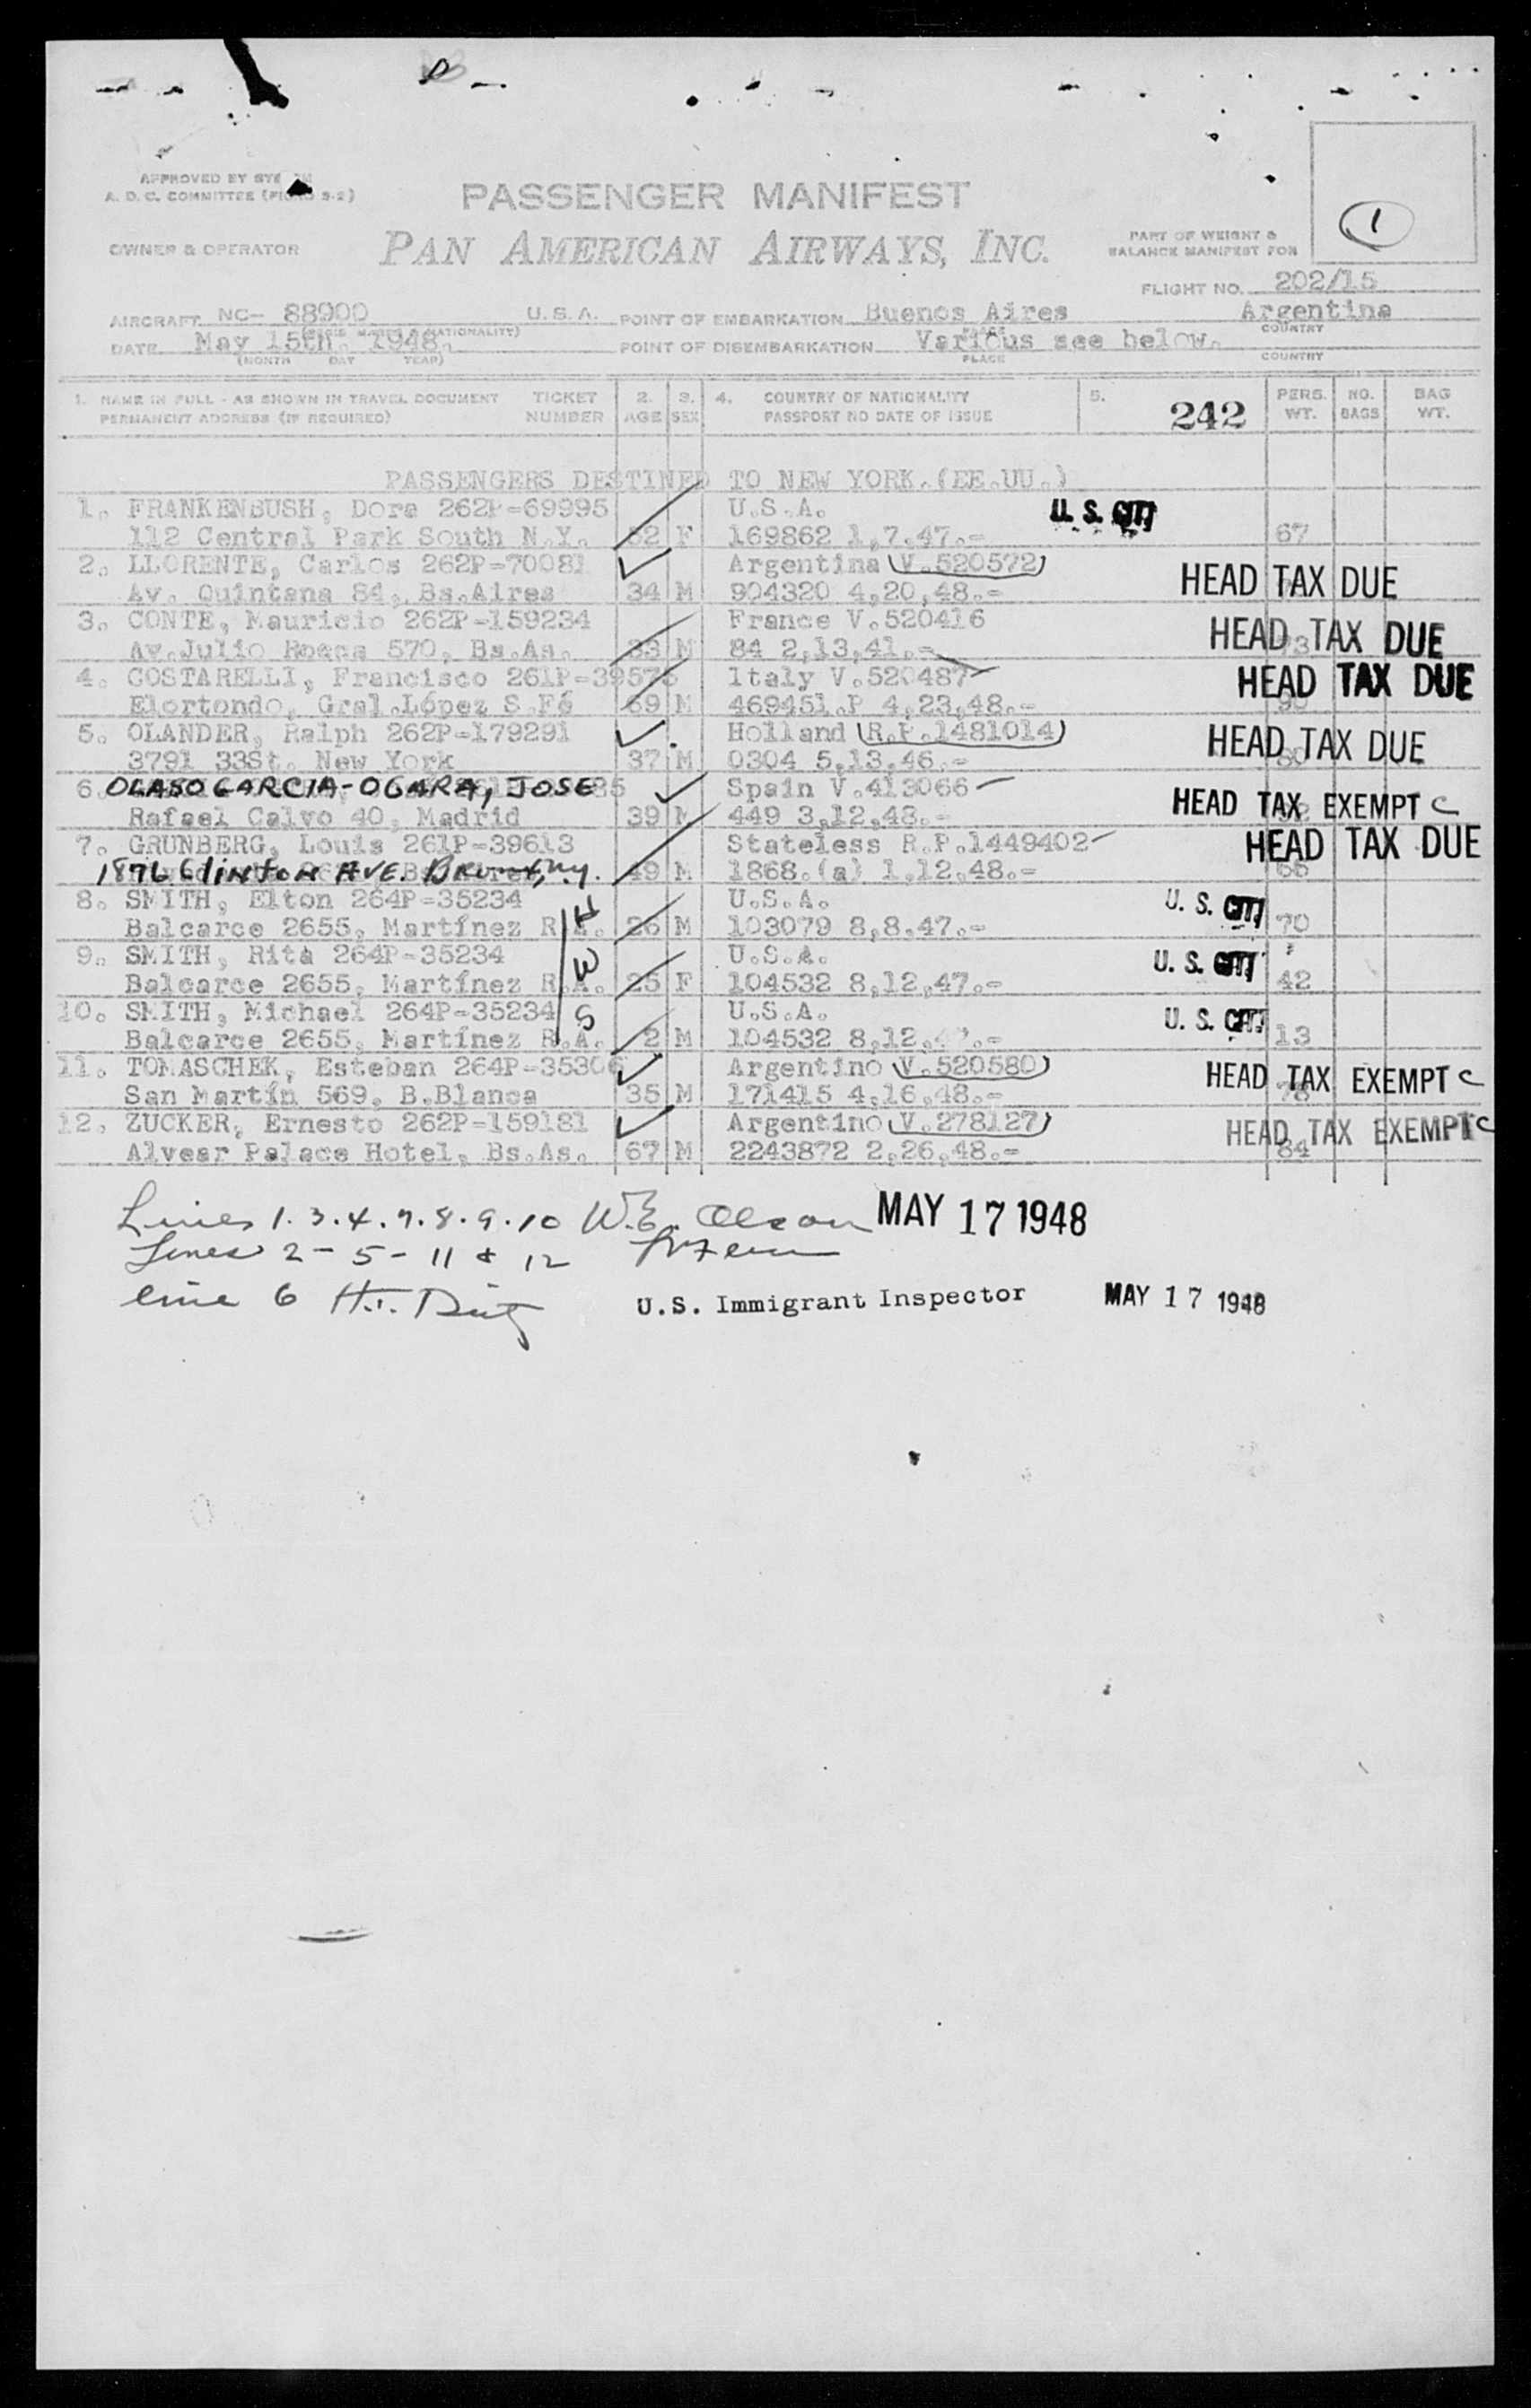 APPROVED BY
A. D. C. COMMITTEE
PASSENGER MANIFEST
OWNER & OPERATOR
PAN AMERICAN AIRWAYS, INC.
PART OF WEIGHT &
BALANCE MANIFEST FOR
1
FLIGHT NO. 202/15
AIRCRAFT NC- 88900 U.S.A. POINT OF EMBARKATION Buenos Aires Argentina
PLACE COUNTRY
DATE May 15th. 1948. POINT OF DISEMBARKATION Various see below.
(MONTH DAY YEAR) PLACE COUNTRY
1. NAME IN FULL - AS SHOWN IN TRAVEL DOCUMENT TICKET 2. 3. 4. COUNTRY OF NATIONALITY 5. 242 PERS. NO. BAG
PERMANENT ADDRESS (IF REQUIRED) NUMBER AGE SEX PASSPORT NO DATE OF ISSUE WT. BAGS WT.
PASSENGERS DESTINED TO NEW YORK.(EE.UU.)
1. FRANKENBUSH, Dora 262P-69995 U.S.A. U. S. CIT
112 Central Park South N.Y. 52 F 169862 1,7.47.- 67
2. LLORENTE, Carlos 262P-70081 Argentina V.520572
Av. Quintana 84, Bs.Aires 34 M 904320 4,20,48.- HEAD TAX DUE
3. CONTE, Mauricio 262P-159234 France V.520416
Av.Julio Rocca 570, Bs.As. 33 M 84 2,13,41.- HEAD TAX DUE
4. COSTARELLI, Francisco 261P-39576 Italy V.520487 HEAD TAX DUE
Elortondo, Gral.López S.Fé 69 M 469451.P 4,23,48.-
5. OLANDER, Ralph 262P-179291 Holland R.P.1481014
3791 33St. New York 37 M 0304 5,13,46.- HEAD TAX DUE 80
6. OLASO GARCIA-OGARA, JOSE Spain V.413066
Rafael Calvo 40, Madrid 39 M 449 3,12,48.- HEAD TAX EXEMPT C
7. GRUNBERG, Louis 261P-39613 Stateless R.P.1449402 HEAD TAX DUE
1876 Clinton AVE. Bronx, N.Y. 49 M 1868.(a) 1,12,48.- 66
8. SMITH, Elton 264P-35234 H U.S.A. U. S. CIT
Balcarce 2655, Martínez R.A. 26 M 103079 8,8,47.- 70
9. SMITH, Rita 264P-35234 W U.S.A. U. S. CIT
Balcarce 2655, Martínez R.A. 25 F 104532 8,12,47.- 42
10. SMITH, Michael 264P-35234 S U.S.A. U. S. CIT
Balcarce 2655, Martínez R.A. 2 M 104532 8,12, 13
11. TOMASCHEK, Esteban 264P-35306 Argentino V.520580
San Martín 569, B.Blanca 35 M 171415 4,16,48.- HEAD TAX EXEMPT C
12. ZUCKER, Ernesto 262P-159181 Argentino V.278127
Alvear Palace Hotel, Bs.As. 67 M 2243872 2,26,48.- HEAD TAX EXEMPT C 84
Lines 1.3.4.7.8.9.10 W.E. Olson MAY 17 1948
Lines 2-5-11 & 12
line 6 H.
U.S. Immigrant Inspector MAY 17 1948